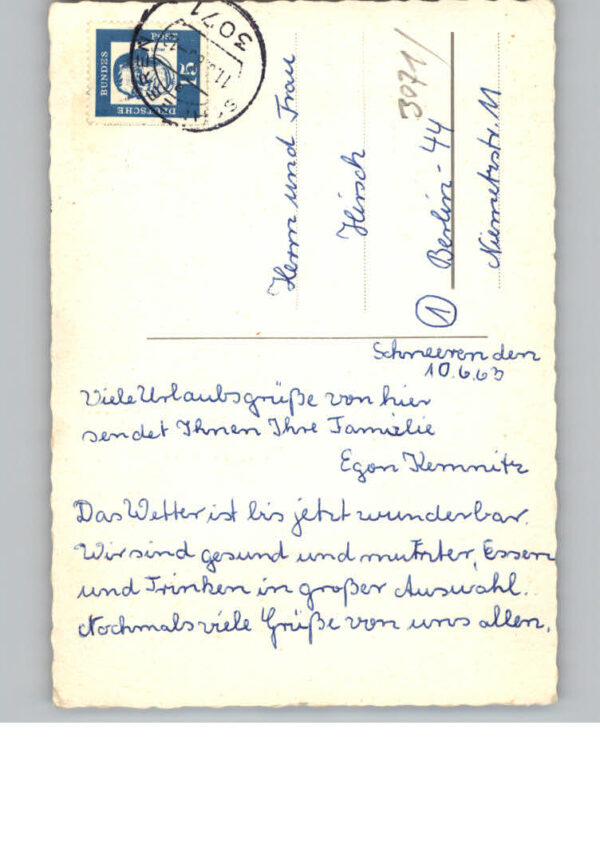 DEUTSCHE
BUNDES
POST
15
3071
3071/
Herrn und Frau
Hirsch
1 Berlin-44
Niemetzstr. 11
Schneeren den
10.6.63
Viele Urlaubsgrüße von hier
sendet Ihnen Ihre Familie
Egon Kemnitz
Das Wetter ist bis jetzt wunderbar.
Wir sind gesund und munter, Essen
und Trinken in großer Auswahl.
Nochmals viele Grüße von uns allen.